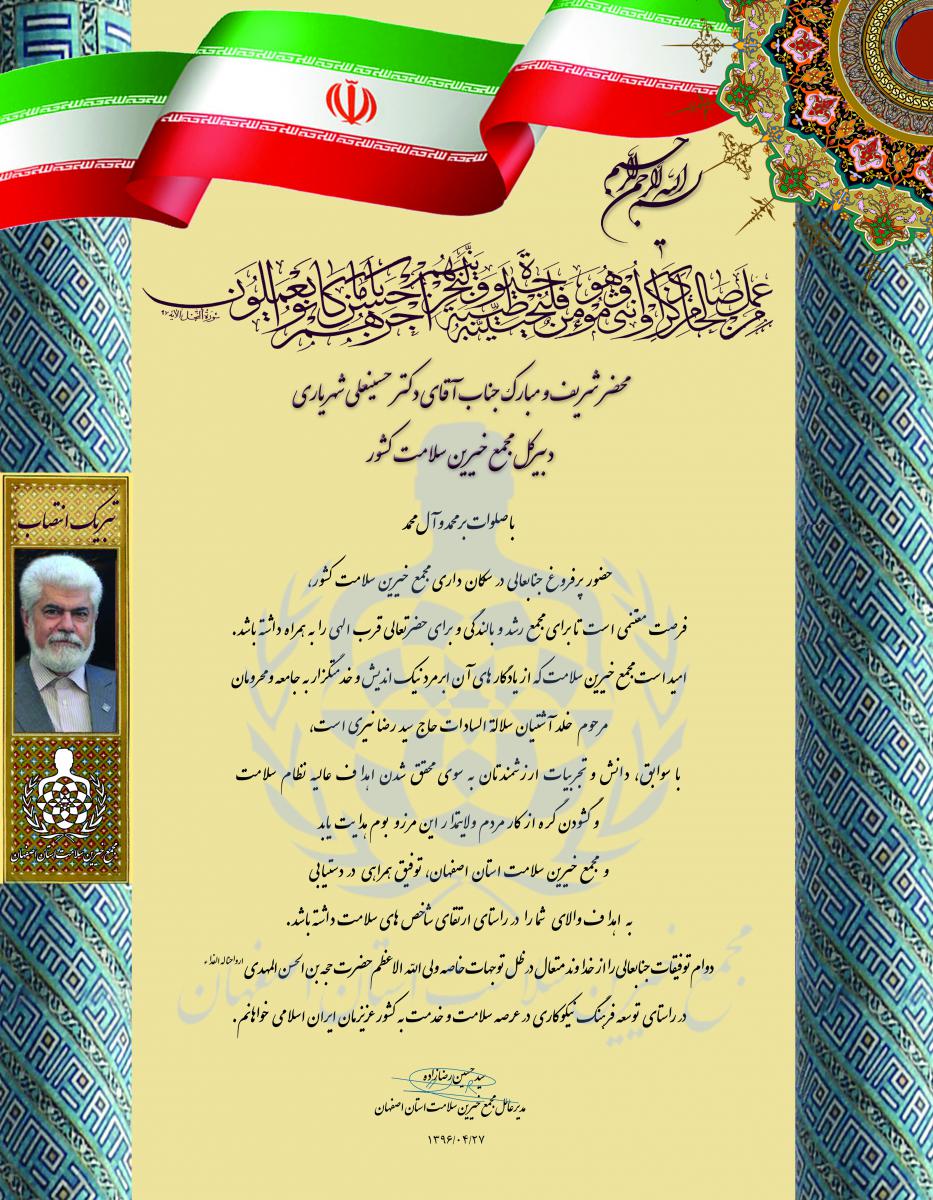 بسم الله الرحمن الرحیم
من عمل صالحا من ذکر او انثی و هو مؤمن فلنحیینه حیوة طیبة و لنجزینهم اجرهم باحسن ما کانوا یعملون
سورة النحل الآیه ۹۶
محضر شریف و مبارک جناب آقای دکتر حسینعلی شهریاری
دبیرکل مجمع خیرین سلامت کشور
با صلوات بر محمد و آل محمد
حضور پرفروغ جنابعالی در سکان داری مجمع خیرین سلامت کشور،
فرصت مغتنمی است تا برای مجمع رشد و بالندگی و برای حضرتعالی قرب الهی را به همراه داشته باشد.
امید است مجمع خیرین سلامت که از یادگارهای آن ابرمرد نیک اندیش و خدمتگزار به جامعه و محرومان
مرحوم خلد آشتیان سلالة السادات حاج سید رضا نیری است،
با سوابق، دانش و تجربیات ارزشمندتان به سوی محقق شدن اهداف عالیه نظام سلامت
و گشودن گره از کار مردم ولایتمدار این مرز و بوم هدایت یابد
و مجمع خیرین سلامت استان اصفهان، توفیق همراهی در دستیابی
به اهداف والای شما را در راستای ارتقای شاخص های سلامت داشته باشد.
دوام توفیقات جنابعالی را از خداوند متعال در ظل توجهات خاصه ولی الله الاعظم حضرت حجه بن الحسن المهدی ارواحنا له الفداء
در راستای توسعه فرهنگ نیکوکاری در عرصه سلامت و خدمت به کشور عزیزمان ایران اسلامی خواهانم.
سید حسین رضازاده
مدیرعامل مجمع خیرین سلامت استان اصفهان
۱۳۹۶/۰۴/۲۷
تبریک انتصاب
مجمع خیرین سلامت استان اصفهان
مجمع خیرین سلامت استان اصفهان